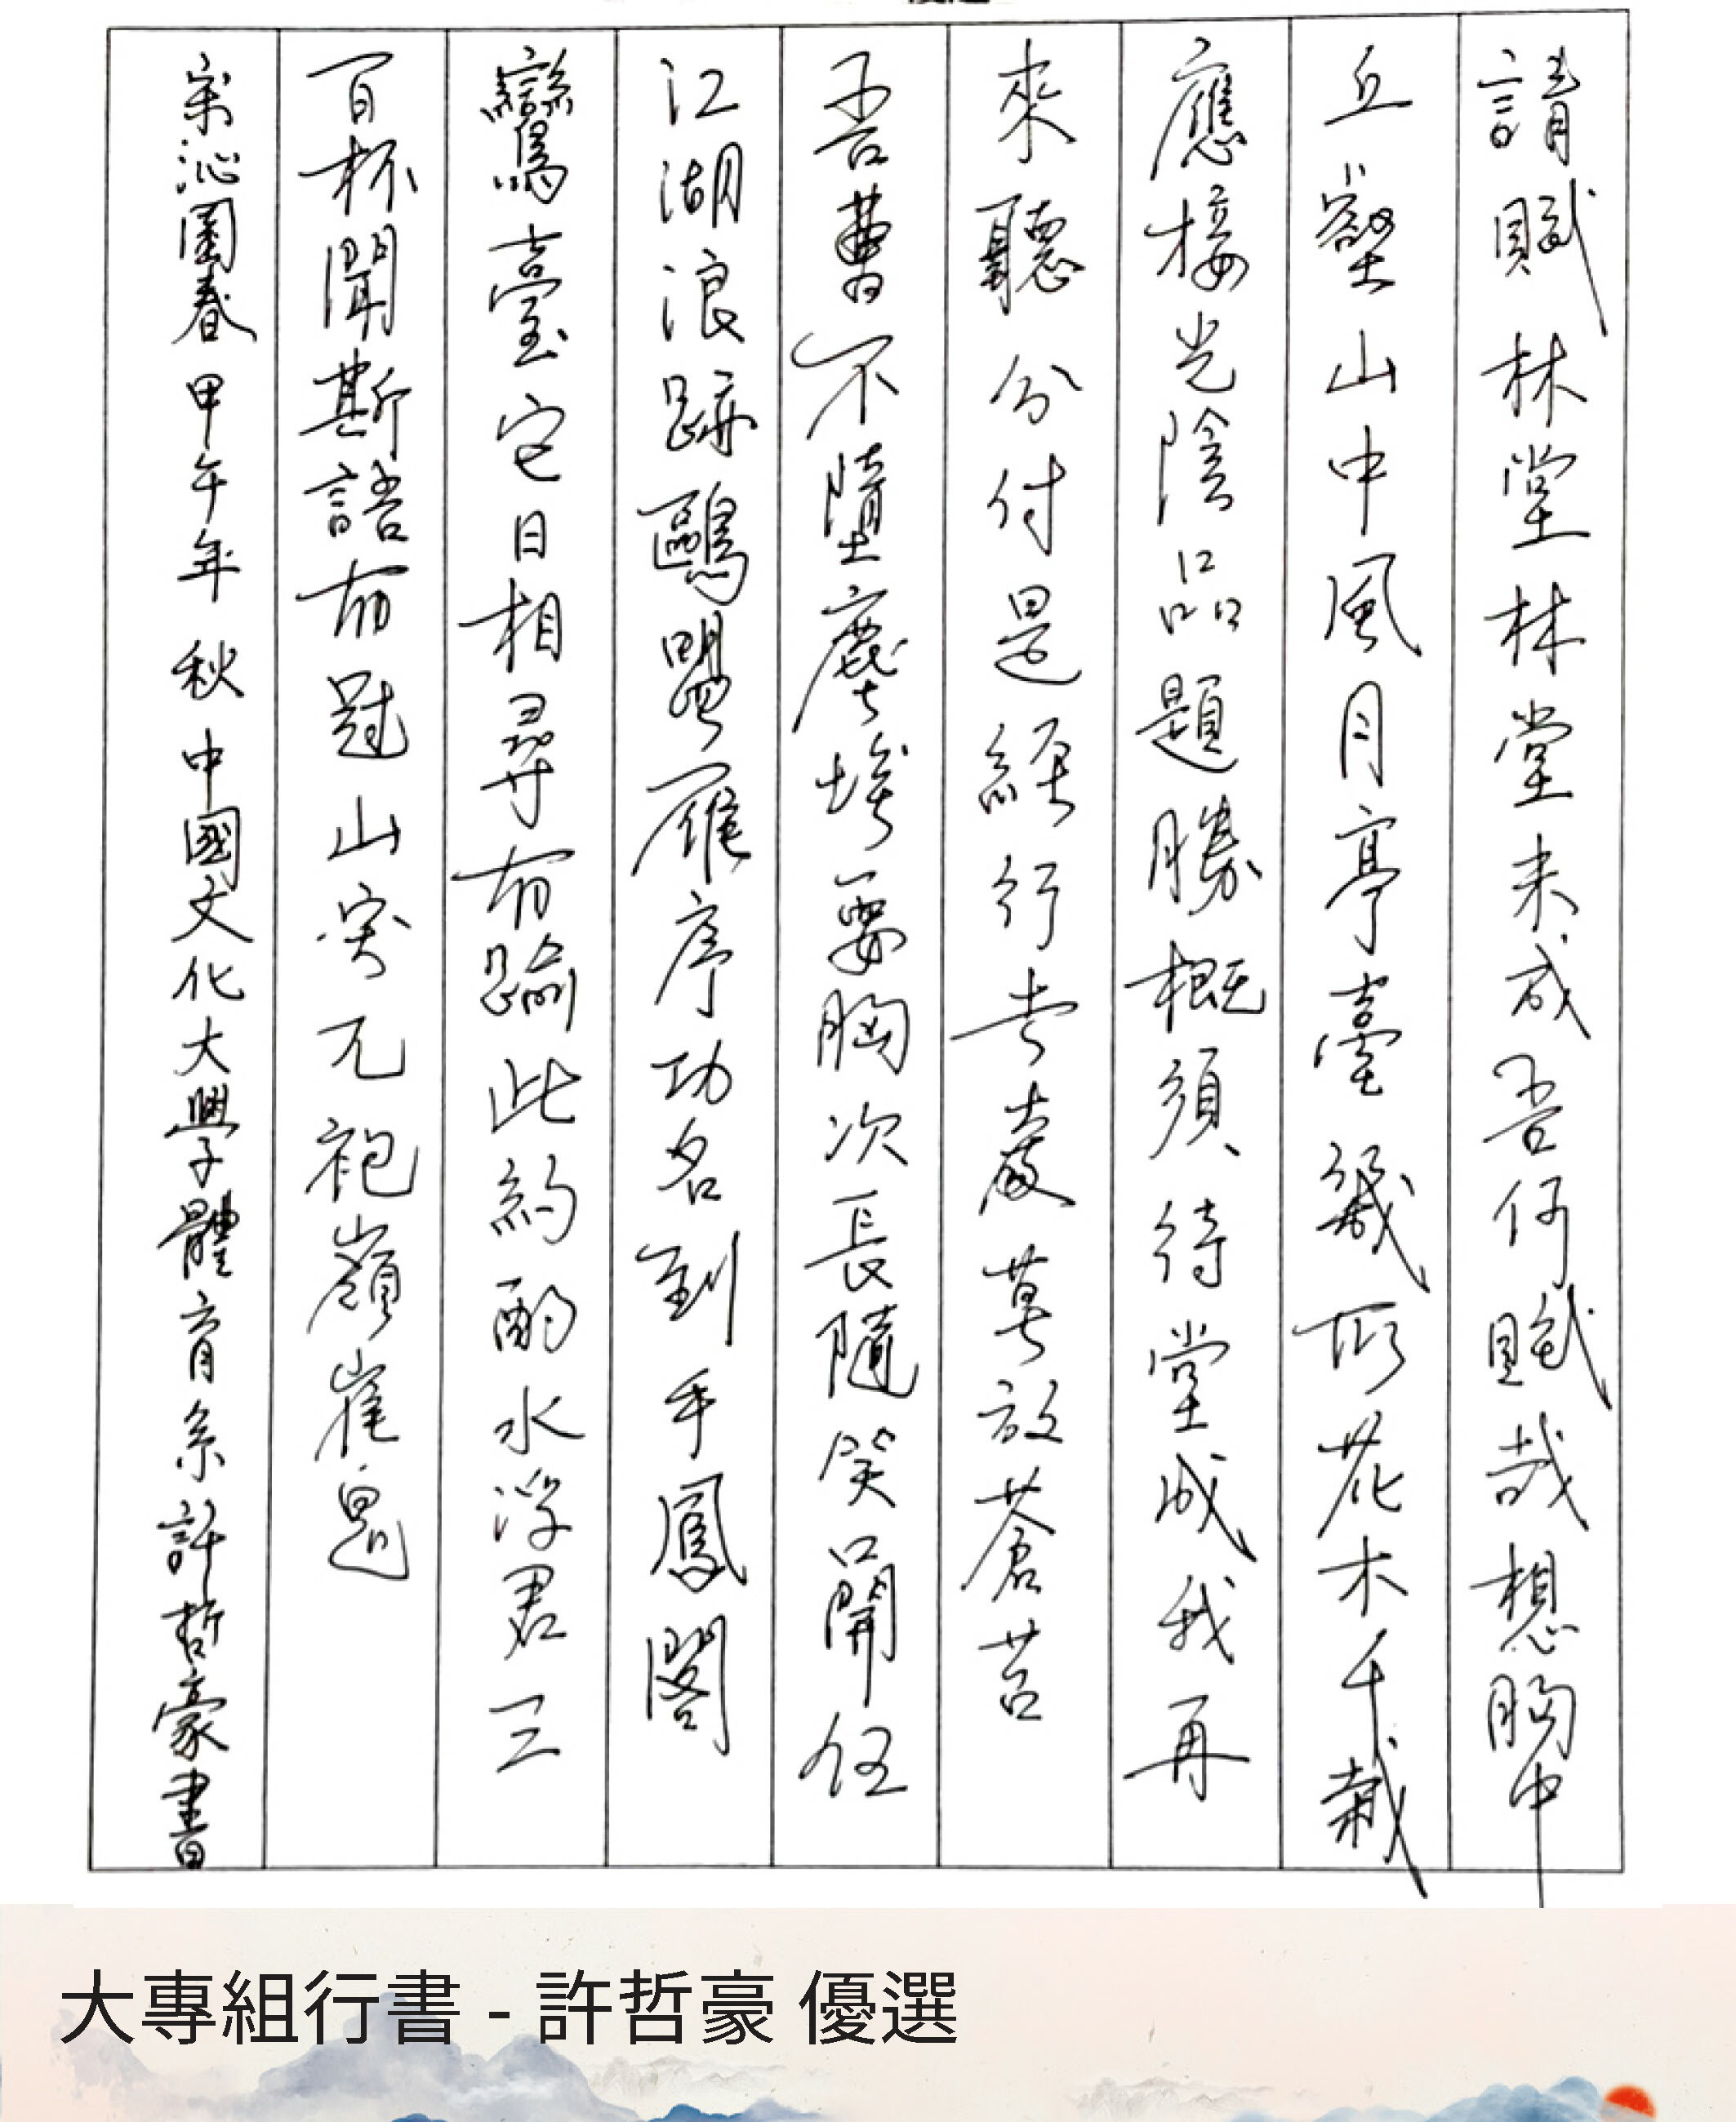 請賦林堂林堂未成吾何賦哉想胸中
丘壑山中風月亭臺幾所花木千栽
應接光陰品題勝概須待堂成我再
來聽分付是經行去處莫放蒼苔
吾曹不墮塵埃要胸次長隨笑口開任
江湖浪跡鷗盟雁序功名到手鳳閣
鸞臺它日相尋有踰此約酌水浮君三
百杯聞斯語有冠山突兀袍嶺崔嵬
宋沁園春 甲午年 秋 中國文化大學體育系許哲豪書
大專組行書 - 許哲豪 優選